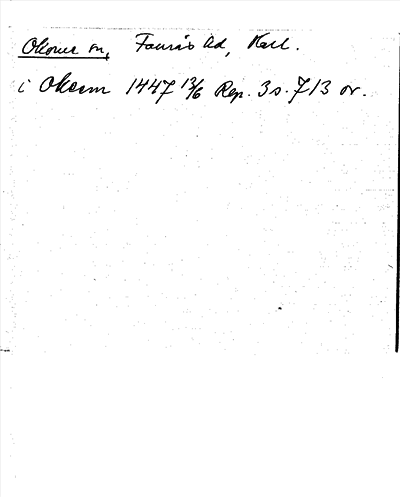 Okome sn, Faurås hd, Hall.
i Okoem 1447 13/6 Rep. 3 s. 713 or.